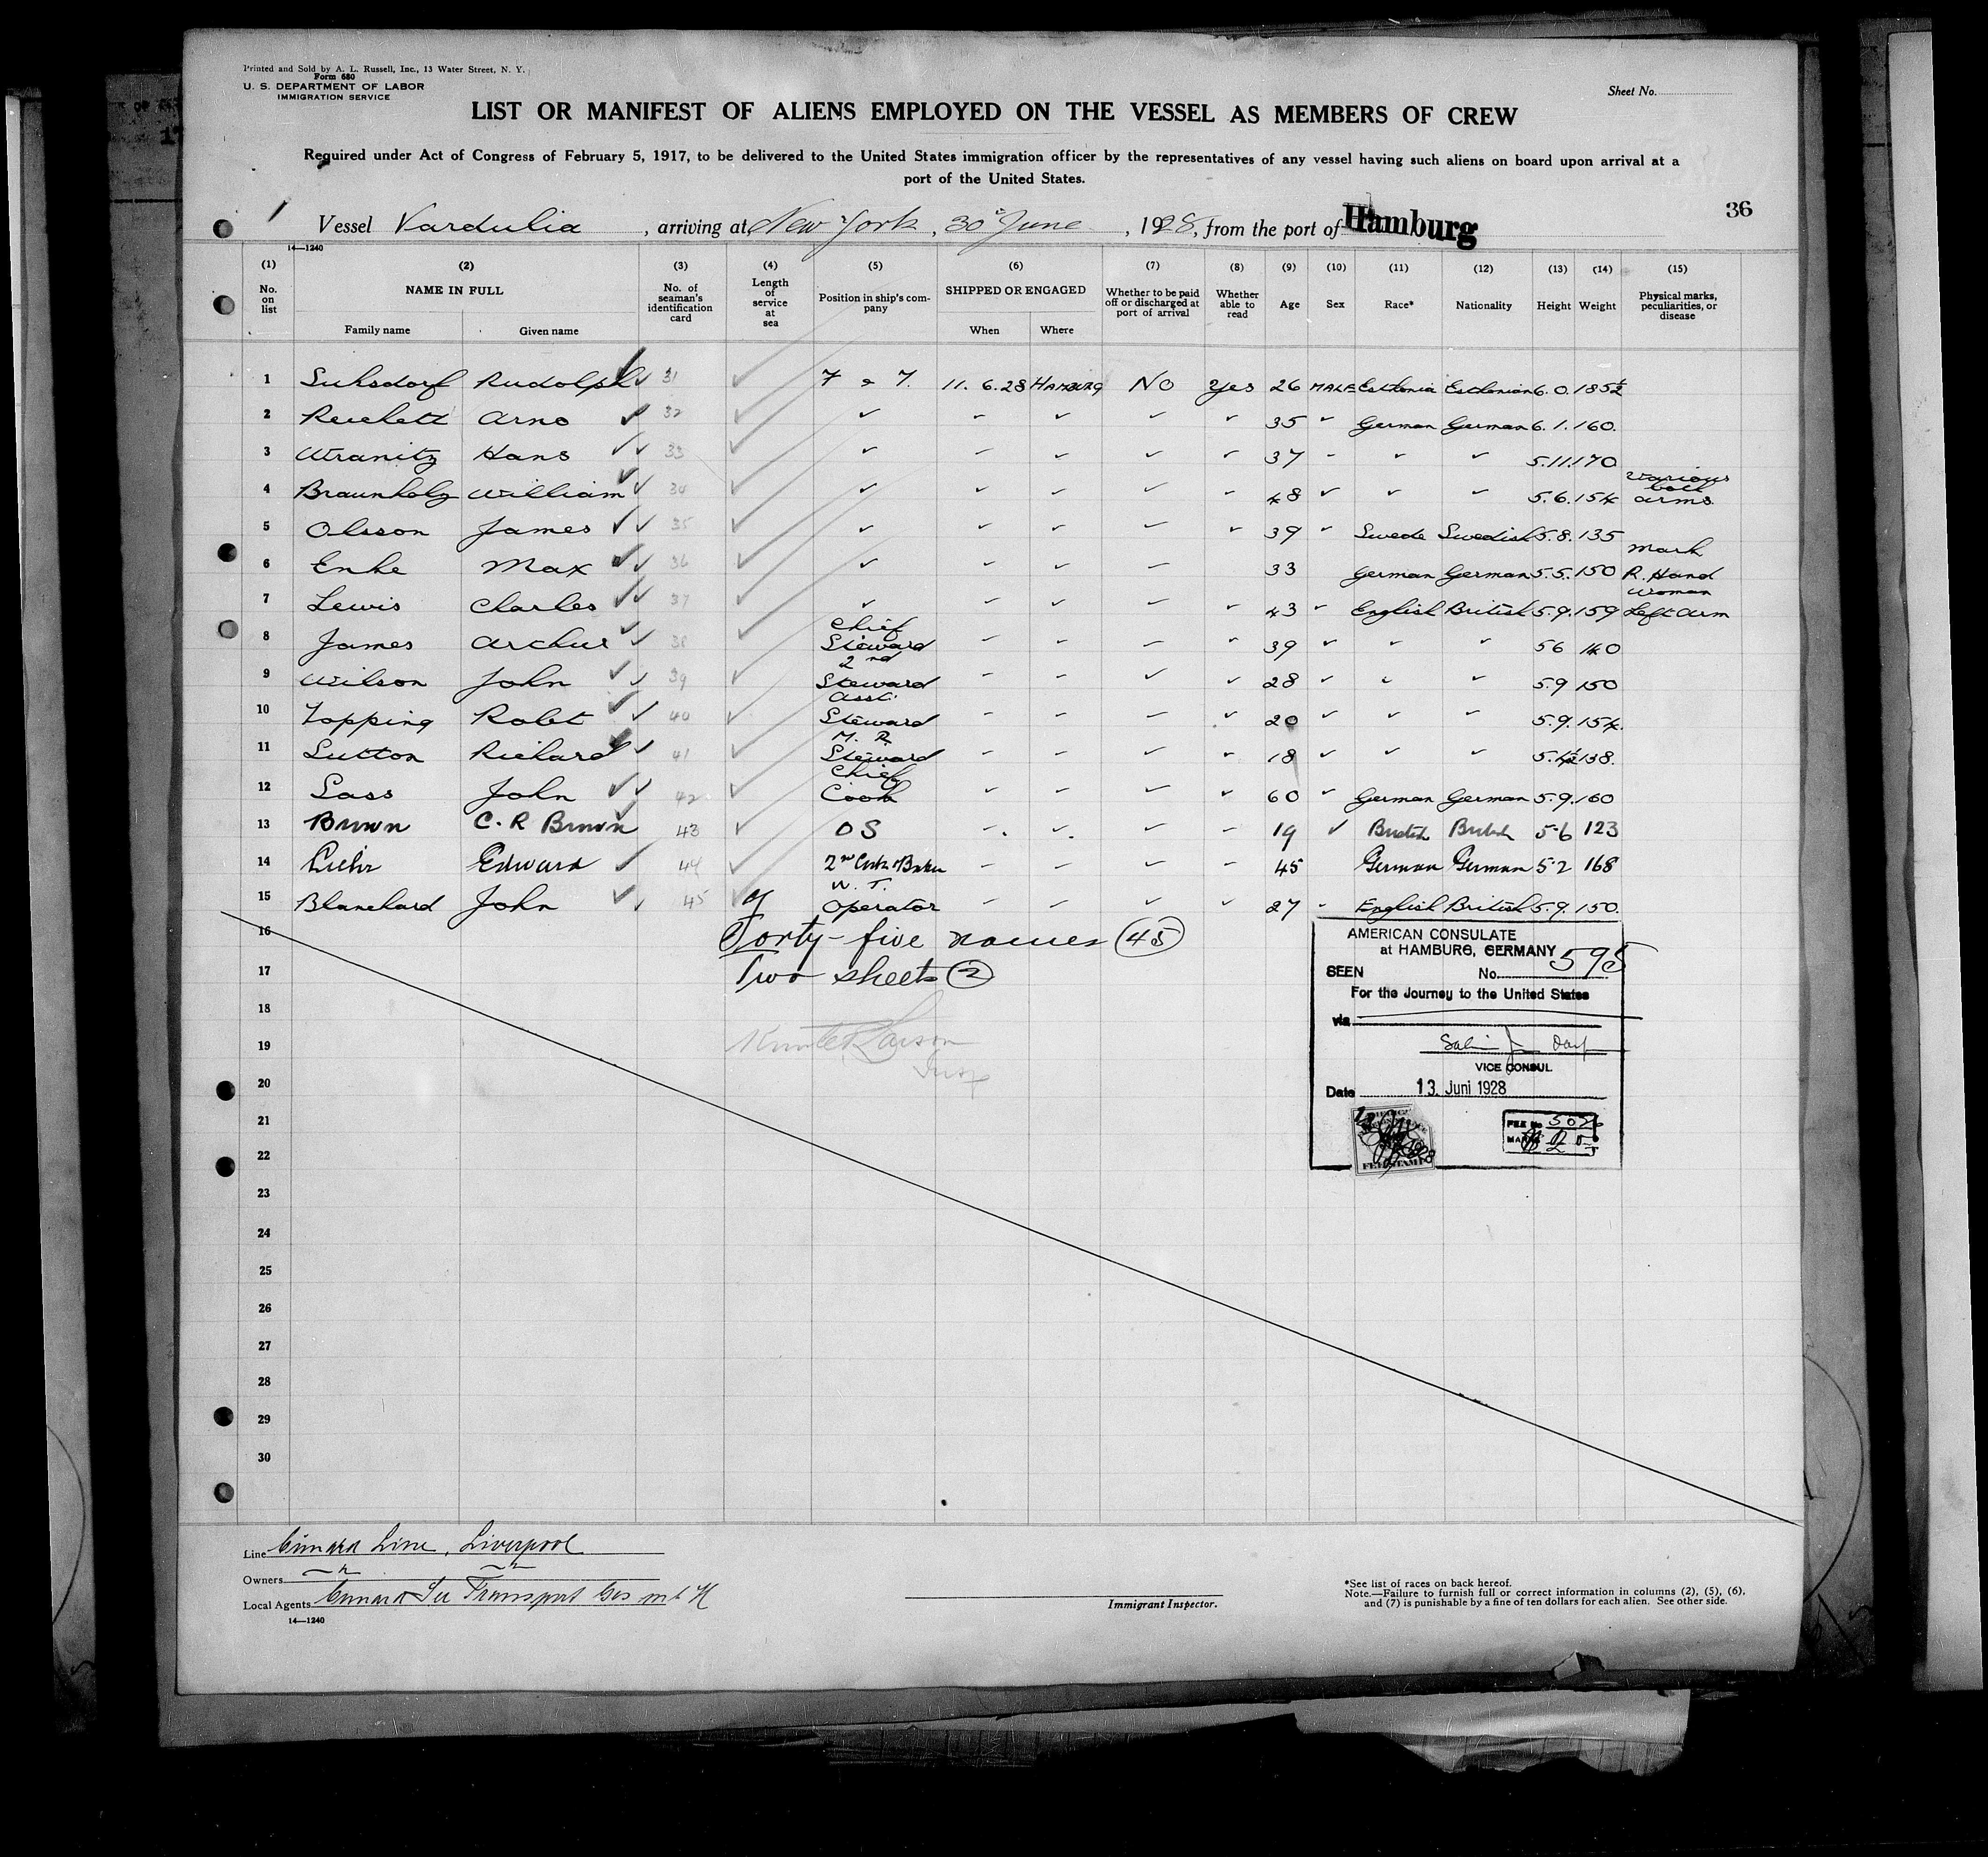 Printed and Sold by A. L. Russell, Inc., 13 Water Street, N. Y.
Form 680
U. S. DEPARTMENT OF LABOR
IMMIGRATION SERVICE
Sheet No.
LIST OR MANIFEST OF ALIENS EMPLOYED ON THE VESSEL AS MEMBERS OF CREW
Required under Act of Congress of February 5, 1917, to be delivered to the United States immigration officer by the representatives of any vessel having such aliens on board upon arrival at a
port of the United States.
36
Vessel Vardulia, arriving at New York, 30 June, 1928, from the port of Hamburg
14—1240
(1) (2) (3) (4) (5) (6) (7) (8) (9) (10) (11) (12) (13) (14) (15)
No. on list
NAME IN FULL
Family name Given name
No. of seaman's identification card
Length of service at sea
Position in ship's company
SHIPPED OR ENGAGED
When Where
Whether to be paid off or discharged at port of arrival
Whether able to read
Age Sex Race* Nationality Height Weight
Physical marks, peculiarities, or disease
1 Suhsdorf Rudolph 31 7 & 7. 11. 6. 28 HAMBURG No Yes 26 MALE Esthonia Esthonian 6. 0. 185½
2 Reichelt Arno 32 35 German German 6. 1. 160.
3 Wranitz Hans 33 37 5.11. 170
4 Braunholz William 34 48 5.6. 154 Various both arms
5 Olsson James 35 39 Swede Swedish 5.8. 135
6 Enke Max 36 33 German German 5.5. 150 Mark R. Hand
7 Lewis Charles 37 43 English British 5.9. 159 Woman Left arm
8 James Arthur 38 Chief Steward 39 56 140
9 Wilson John 39 2nd Steward 28 5.9 150
10 Topping Robet 40 Asst. Steward 20 5.9. 154.
11 Sutton Richard 41 M. R. Steward 18 5.4½ 138.
12 Sass John 42 Chief Cook 60 German German 5.9. 160
13 Brown C. R Brown 43 OS 19 British British 5-6 123
14 Edward 44 2nd Cook & Baker 45 German German 5-2 168
15 Blanchard John 45 W. T. Operator 27 English British 5.9. 150.
16 Forty-five names (45)
17 Two sheets (2)
18
19
20
21
22
23
24
25
26
27
28
29
30
AMERICAN CONSULATE
at HAMBURG, GERMANY
SEEN No. 595
For the Journey to the United States
via
VICE CONSUL
Date 13. Juni 1928
FEE No. 
MARK
FEE STAMP
Line Cunard Line, Liverpool
Owners
Local Agents Cunard See Transport Ges mbH
14—1240
Immigrant Inspector.
*See list of races on back hereof.
Note.—Failure to furnish full or correct information in columns (2), (5), (6),
and (7) is punishable by a fine of ten dollars for each alien. See other side.